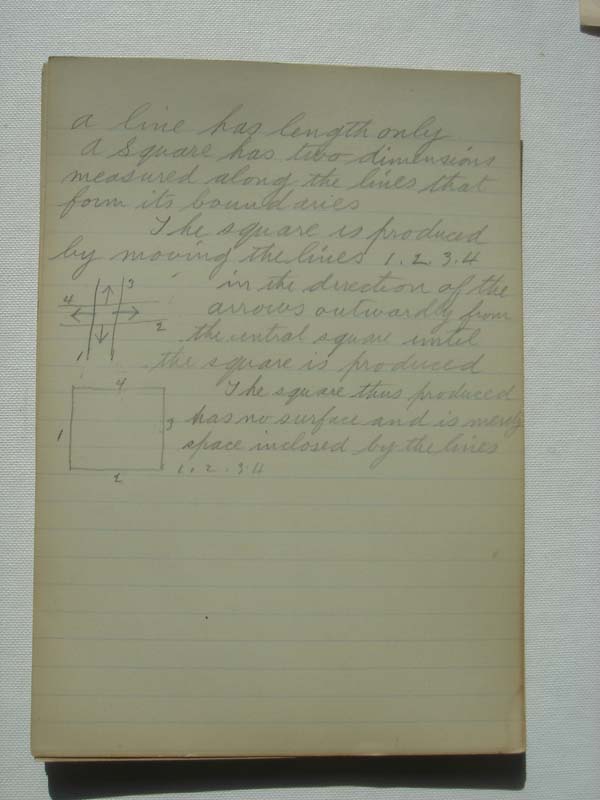 a line has length only
a Square has two dimensions
measured along the lines that
form its boundaries
The square is produced
by moving the lines 1.2.3.4
in the direction of the
arrows outwardly from
the central square until
the square is produced
3
4
2
1
The square thus produced
has no surface and is merely
space inclosed by the lines
1.2.3.4
4
1
3
2